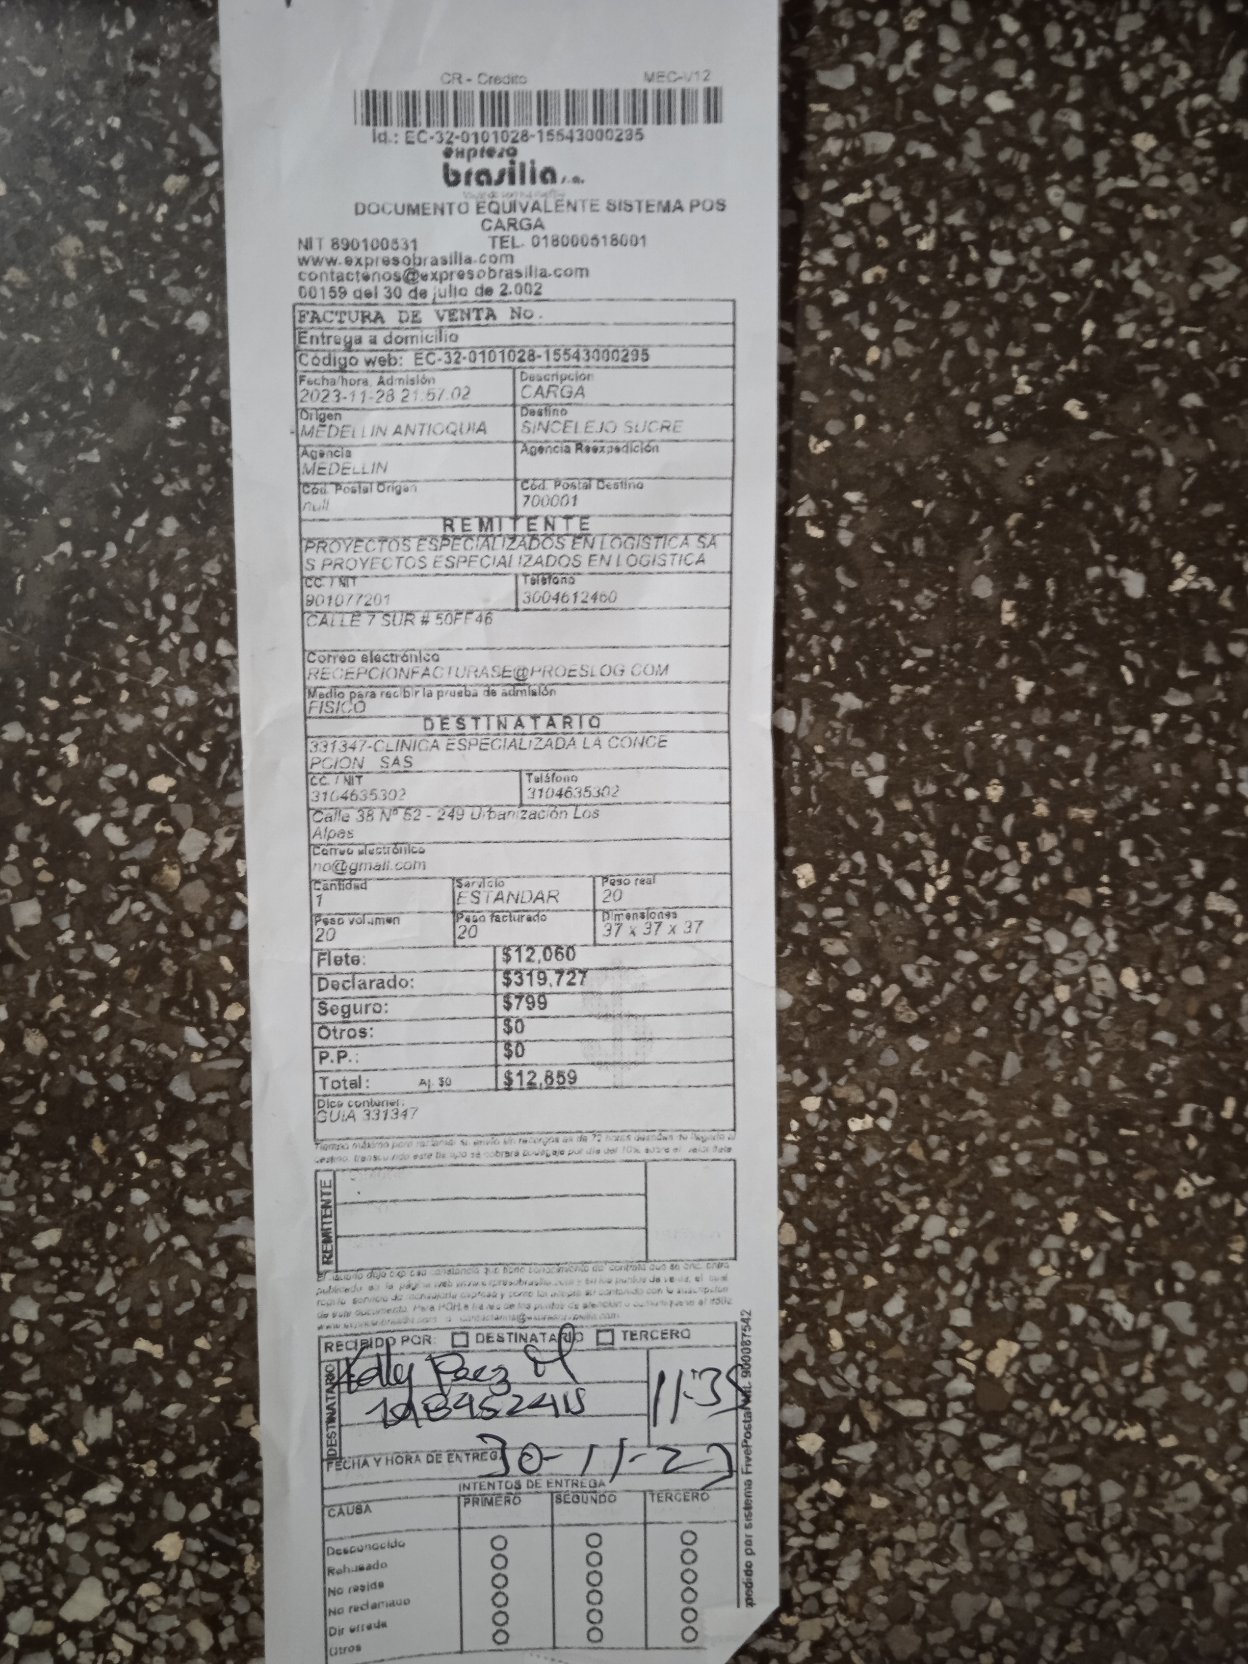 CR - Credito MEC-V12
Id.: EC-32-0101028-15543000295
expreso
brasilia s.a.
DOCUMENTO EQUIVALENTE SISTEMA POS
CARGA
NIT 890100531 TEL. 018000518001
www.expresobrasilia.com
contactenos@expresobrasilia.com
00159 del 30 de julio de 2.002
FACTURA DE VENTA No.
Entrega a domicilio
Código web: EC-32-0101028-15543000295
Fecha/hora, Admisión Descripción
2023-11-28 21:57:02 CARGA
Origen Destino
MEDELLIN ANTIOQUIA SINCELEJO SUCRE
Agencia Agencia Reexpedición
MEDELLIN
Cód. Postal Origen Cód. Postal Destino
null 700001
REMITENTE
PROYECTOS ESPECIALIZADOS EN LOGISTICA SA
S PROYECTOS ESPECIALIZADOS EN LOGISTICA
CC / NIT Teléfono
901077201 3004612460
CALLE 7 SUR # 50FF46
Correo electrónico
RECEPCIONFACTURASE@PROESLOG.COM
Medio para recibir la prueba de admisión
FISICO
DESTINATARIO
331347-CLINICA ESPECIALIZADA LA CONCE
PCION SAS
CC / NIT Teléfono
3104635302 3104635302
Calle 38 Nº 52 - 249 Urbanización Los
Alpes
Correo electrónico
no@gmail.com
Cantidad Servicio Peso real
1 ESTANDAR 20
Peso volumen Peso facturado Dimensiones
20 20 37 x 37 x 37
Flete: $12,060
Declarado: $319,727
Seguro: $799
Otros: $0
P.P.: $0
Total: Aj. $0 $12,859
Dice contener:
GUIA 331347
Tiempo máximo para reclamar su envío sin recargos es de 72 horas después de llegado al
destino, transcurrido este tiempo se cobrará bodegaje por día del 10% sobre el valor flete
REMITENTE
RECIBIDO POR: DESTINATARIO TERCERO
DESTINATARIO
Kelly Paez
11-35
FECHA Y HORA DE ENTREGA 30-11-23
INTENTOS DE ENTREGA
CAUSA PRIMERO SEGUNDO TERCERO
Desconocido
Rehusado
No reside
No reclamado
Dir errada
Otros
pedido por sistema FivePostal Nit. 900087542